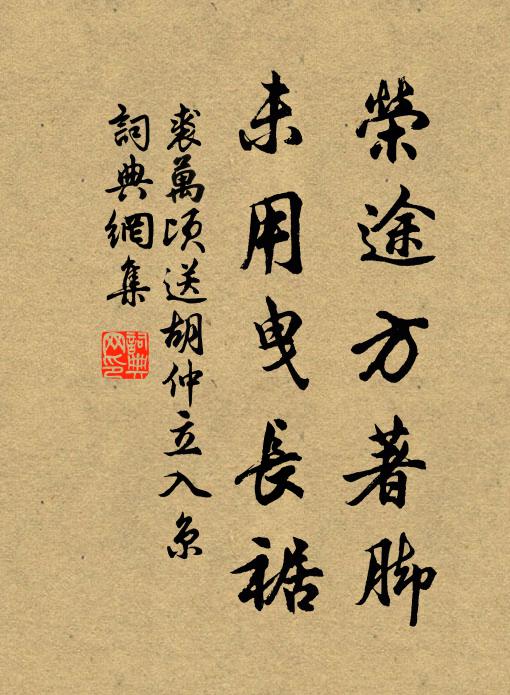 榮途方著脚
未用曳長裾
裘萬頃送胡仲立入京
詞典網集
詞典網印